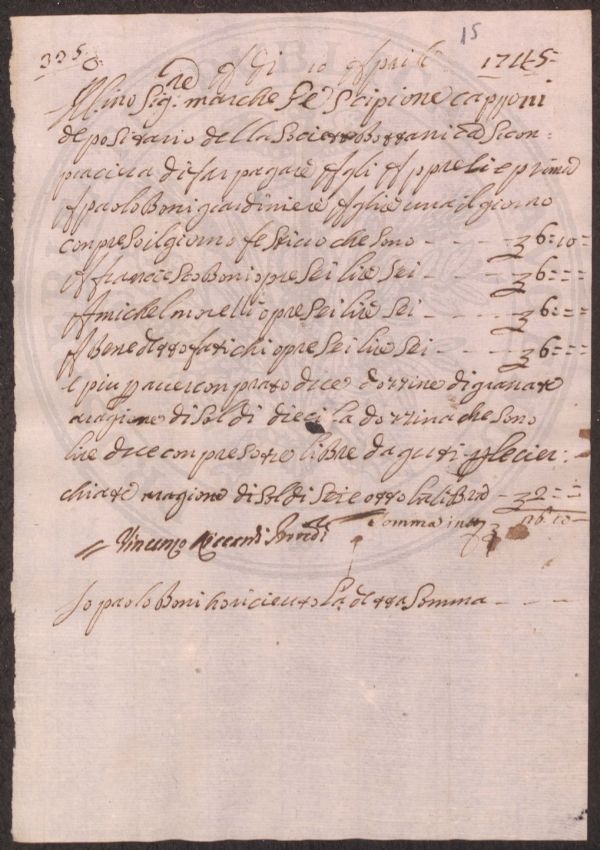 15
335
A dì 10 Aprile 1745
Ill.mo Sig.re Marchese Scipione Capponi
depositario della Societa Bottanica Si con-
piacera di far pagare Agli Appresi e prima
A paolo Boni giardiniere Aglie una il giorno
conpreso il giorno festiuo che sono - - - - 6:10
A franciesco Boni opre sei lire sei - - - 6:=:=
A michel morelli opre sei lire sei - - - 6:=:=
A Benedetto fatichi opre sei lire sei - - - 6:=:=
E piu p auer conprato duce dozzine di granate
aragione di soldi dieci la dozzina che sono
lire due conpreso tre libbre da guti p le cier:
chiate aragione di soldi sei e otto la libra - 2=:=
Somma in tt.o 26:10
Vincenzo
Io paolo Boni ho riceuto la detta Somma - - -